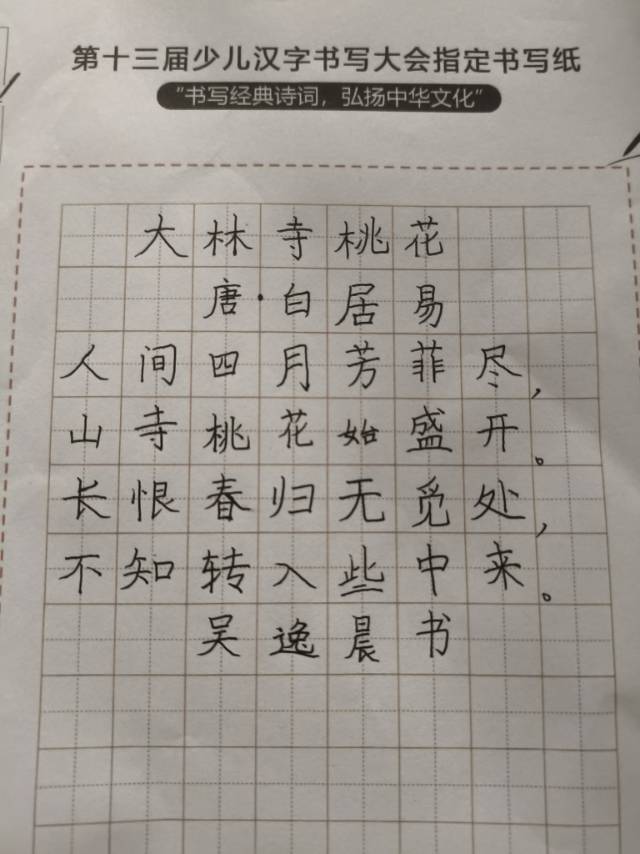 第十三届少儿汉字书写大会指定书写纸
“书写经典诗词，弘扬中华文化”
大林寺桃花
唐·白居易
人间四月芳菲尽，
山寺桃花始盛开。
长恨春归无觅处，
不知转入些中来。
吴逸晨书